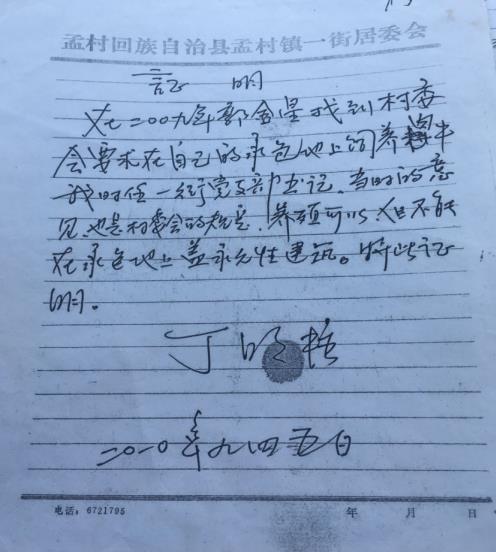 孟村回族自治县孟村镇一街居委会
証 明
在二00九年郭金星找到村委
会要求在自己的承包地上饲养牛
我时任一街党支部书记,当时的意
见,也是村委会的规定,养殖可以,但不能
在承包地上盖永久性建筑。特此证
明.
丁明
二0一0年九月五日
电话:6721795 年 月 日